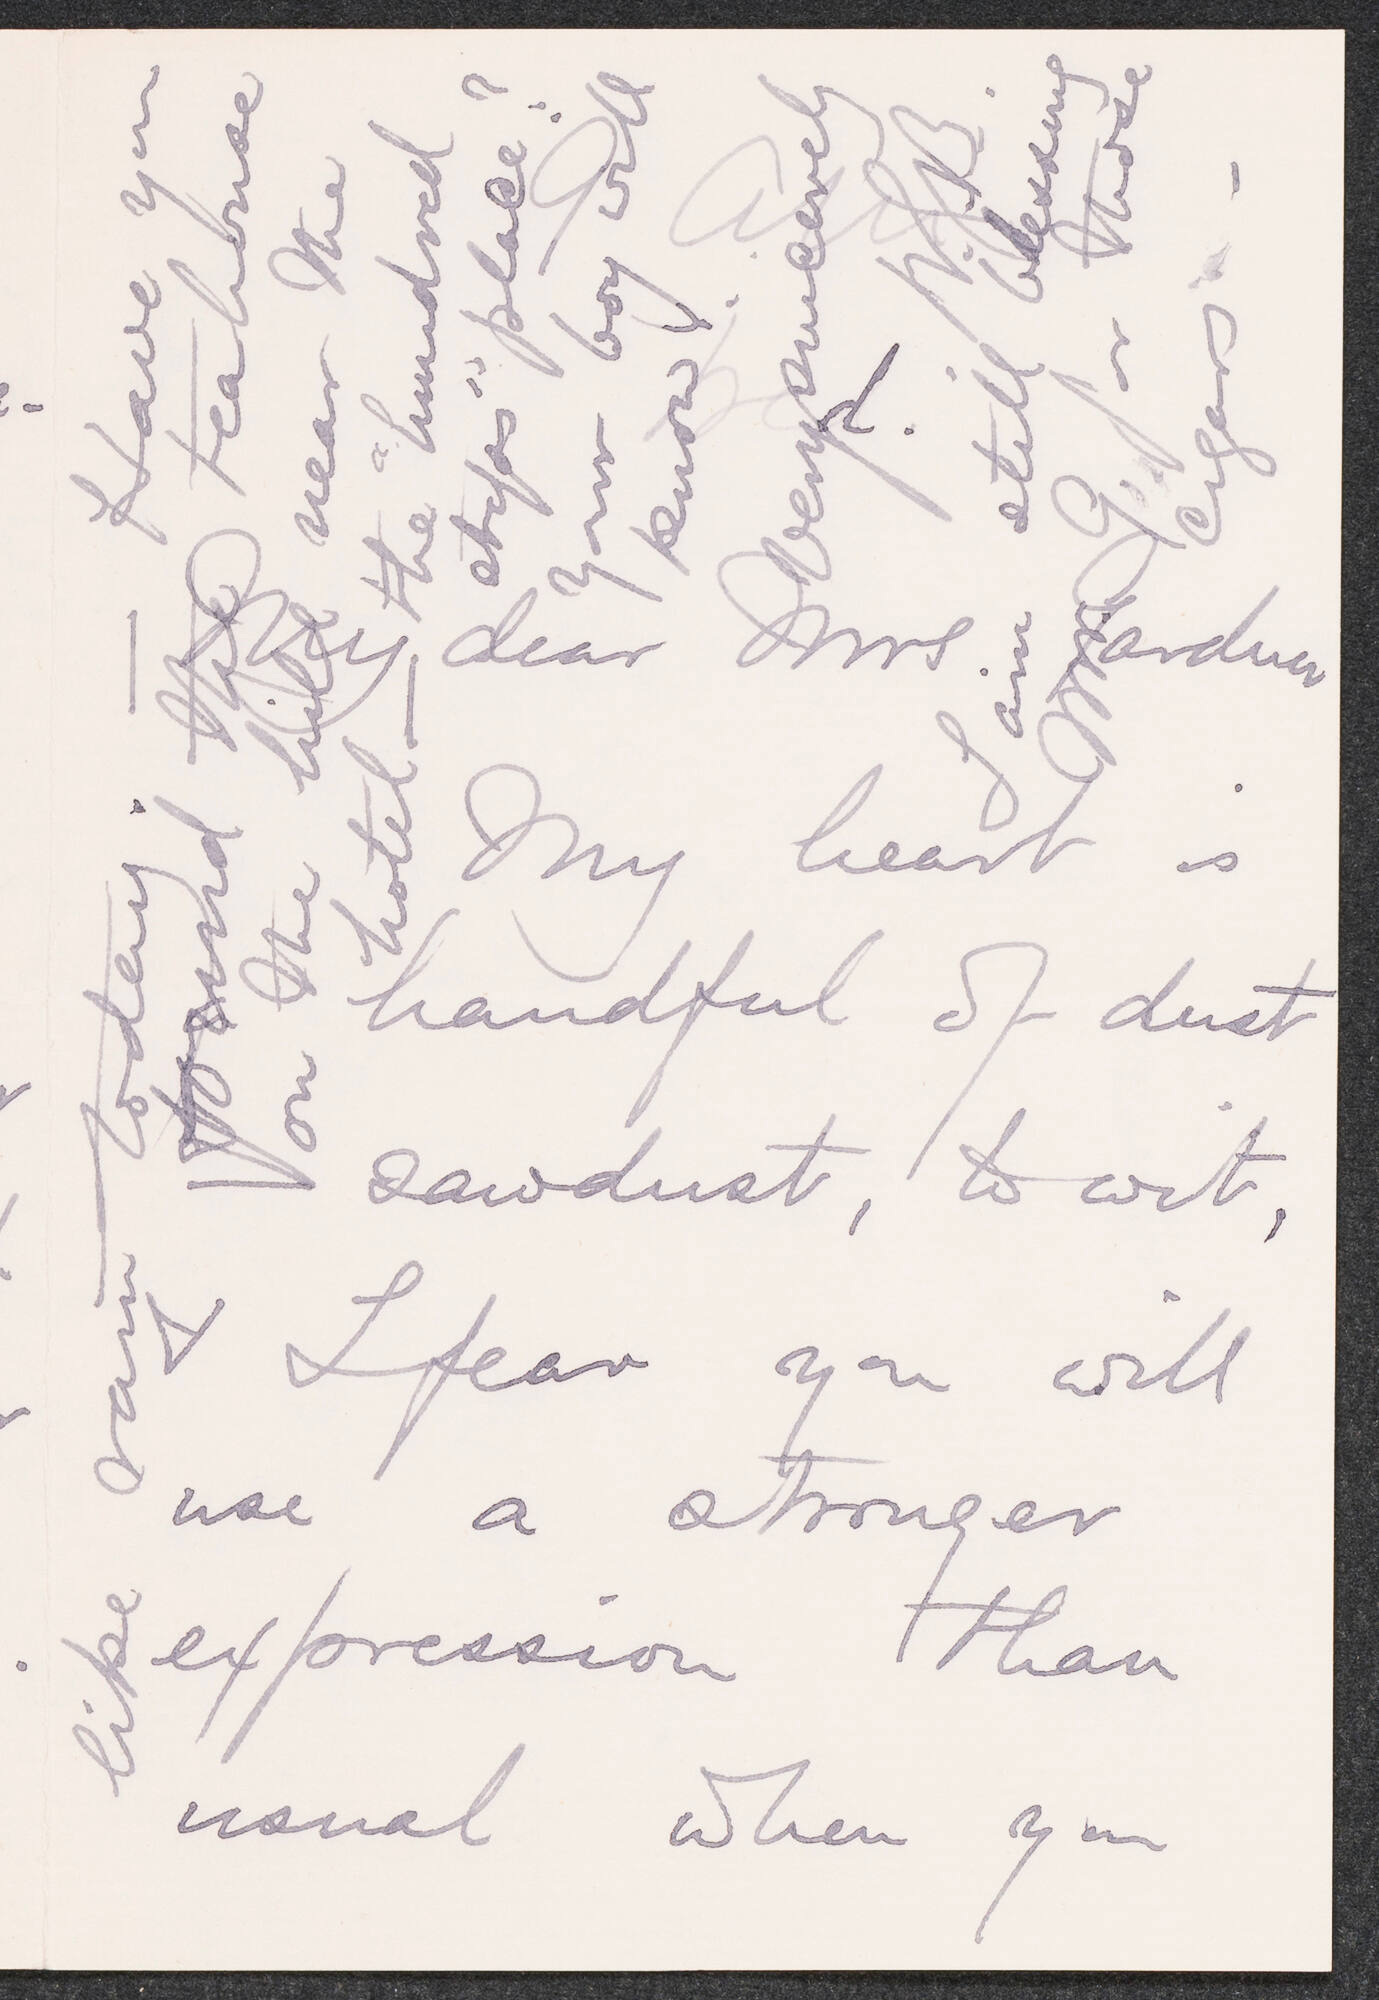 My dear Mrs. Gardner
My heart is
handful of dust
sawdust, to wit,
I fear you will
use a stronger
expression than
usual when you
like rain today — Have you
found the teahouse
on the hill near the
hotel — the "hundred
steps" place?
your boy will
know!
Very sincerely
I am still blessing
Mr. G for those
cigars —